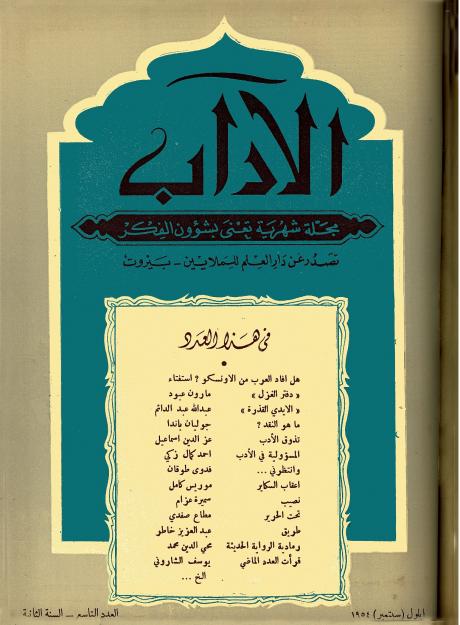 الآداب
مجلة شهرية تعنى بشؤون الفكر
تصدر عن دار العلم للملايين - بيروت
في هذا العدد
هل افاد العرب من الاونسكو ؟ استفتاء
« دفتر الغزل » مارون عبود
« الايدي القذرة » عبدالله عبد الدائم
ما هو النقد ؟ جوليان باندا
تذوق الأدب عز الدين اسماعيل
المسؤولية في الأدب احمد كمال زكي
وانتظرني ... فدوى طوقان
اعقاب السكاير موريس كامل
نصيب سميرة عزام
تحت الحرير مطاع صفدي
طويق عبد العزيز خاطر
رمادية الرواية الحديثة محي الدين محمد
قرأت العدد الماضي يوسف الشاروني
الخ ...
ايلول (سبتمبر) ١٩٥٤ العدد التاسع - السنة الثانية